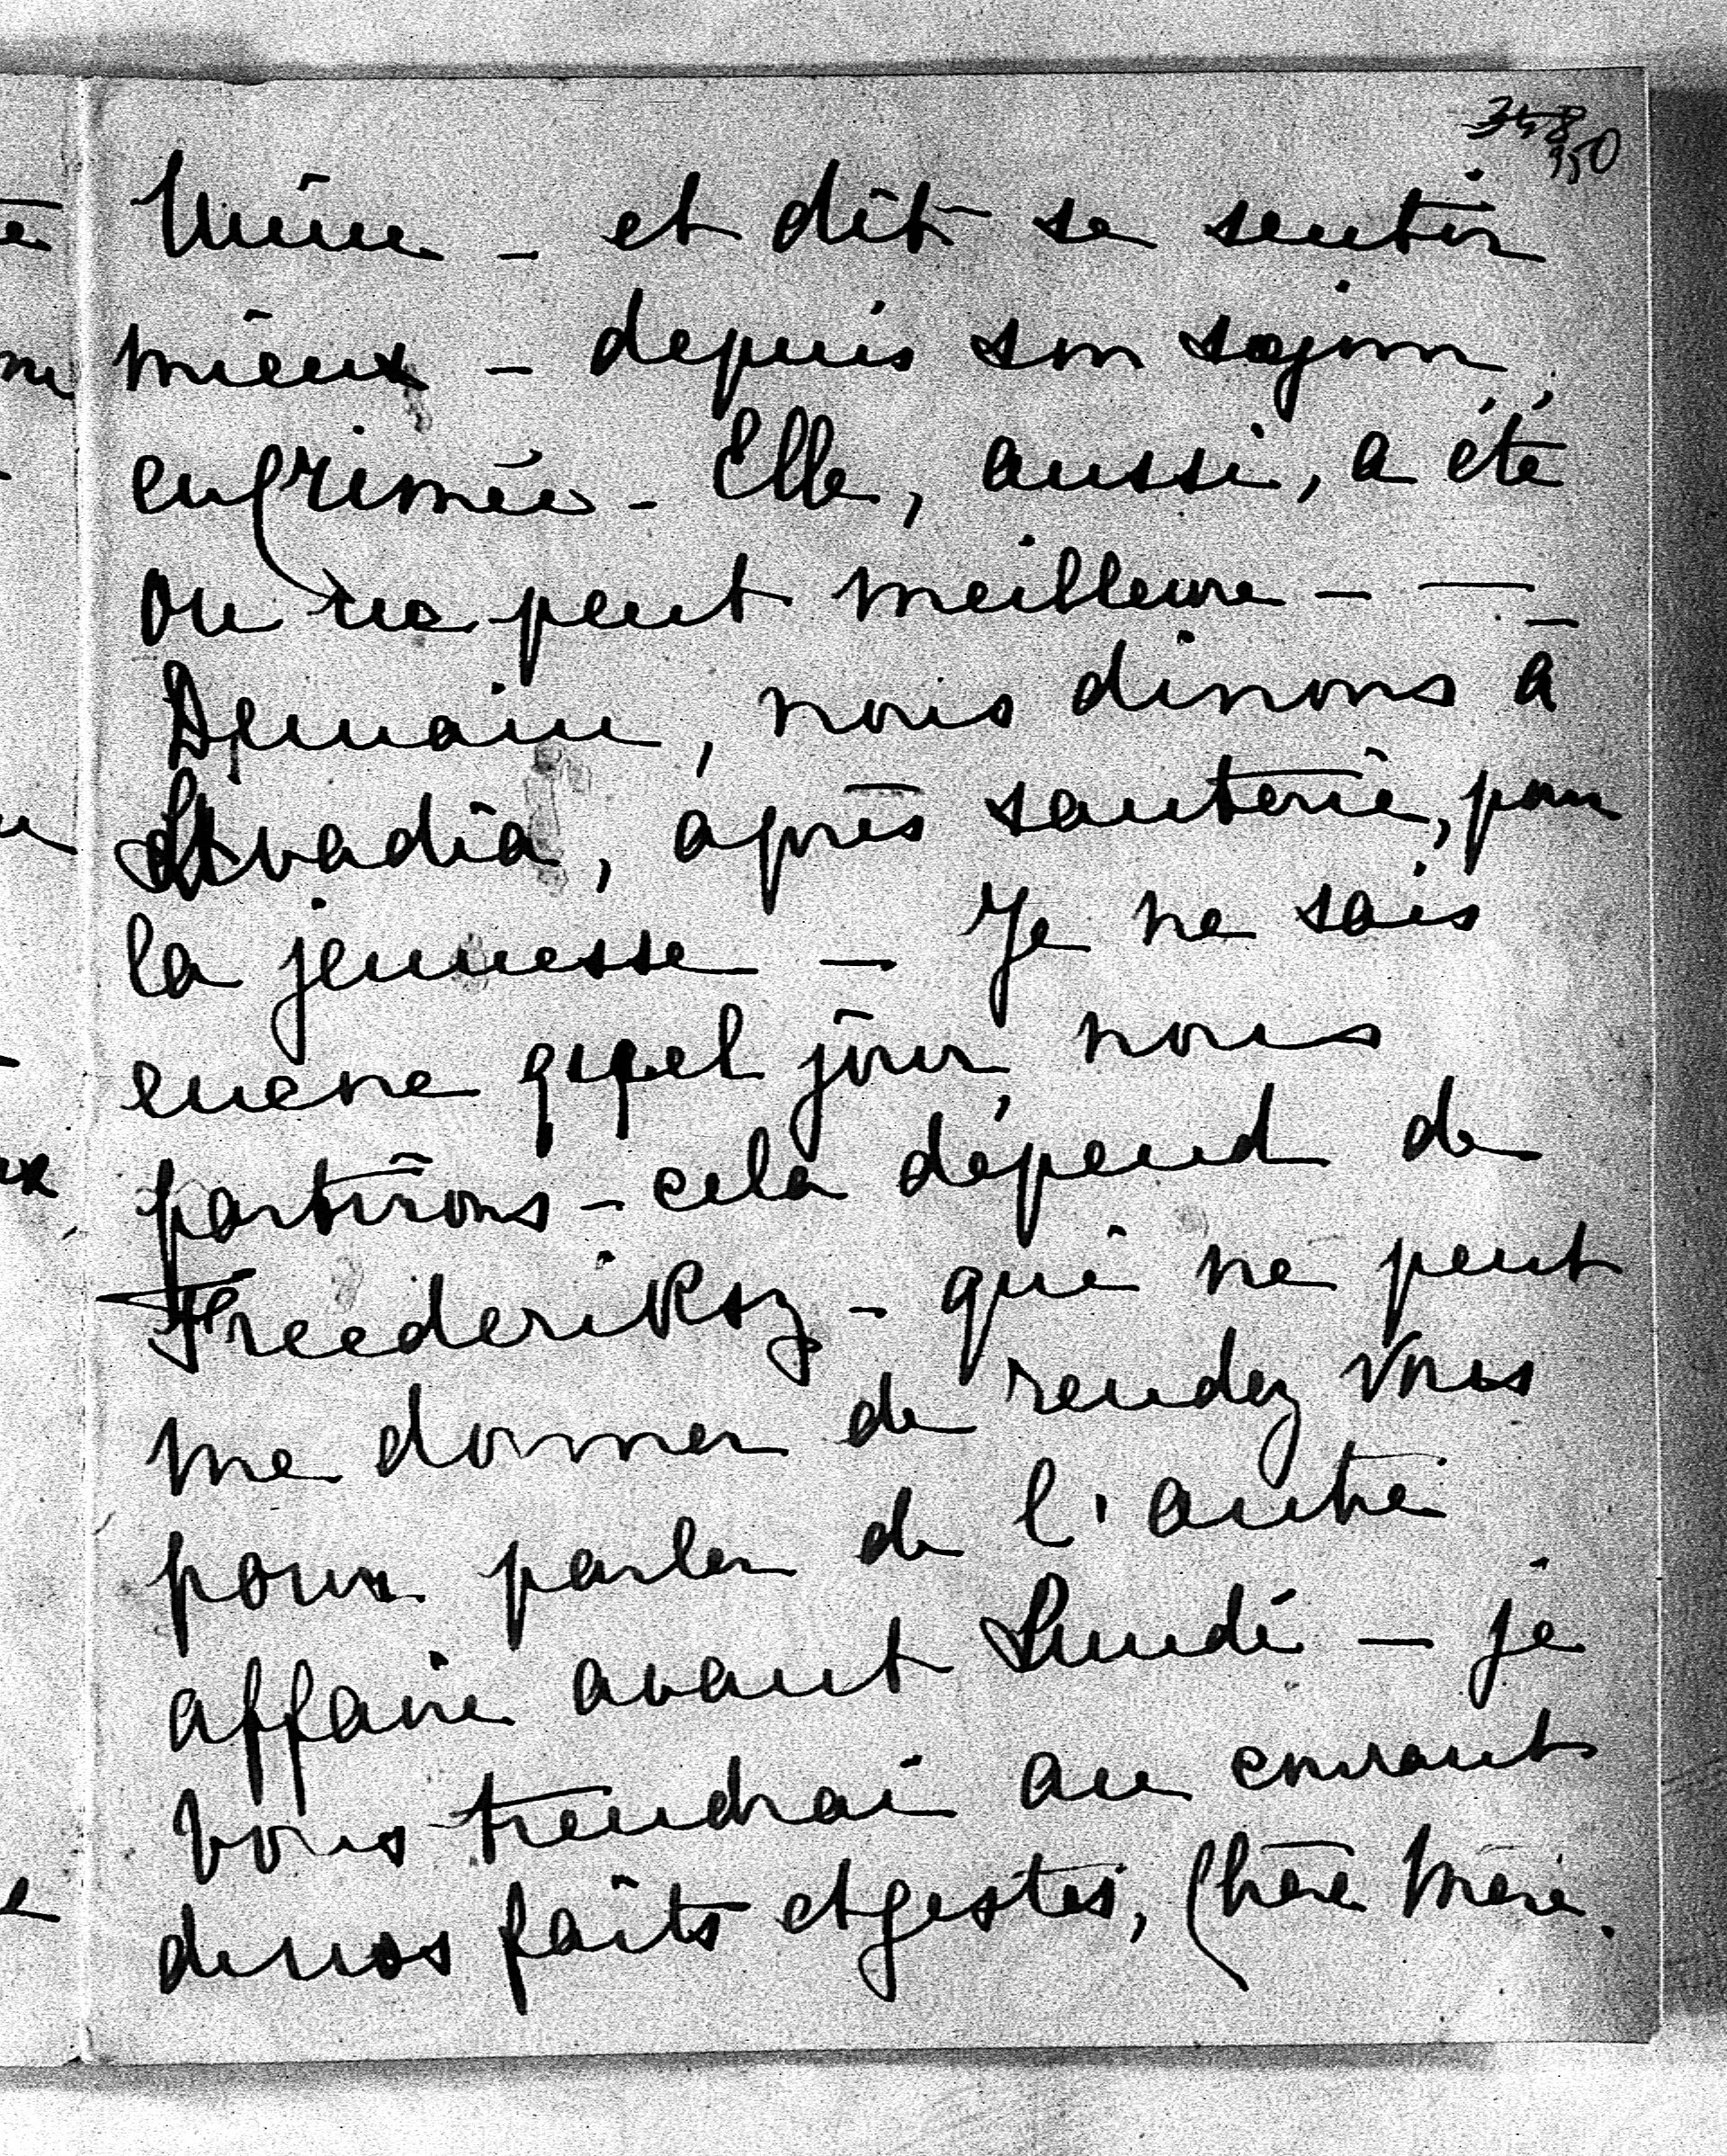 348
350
mine - et dit se sentir
mieux - depuis son sejour
en Crimée - Elle, aussi, a été
on ne peut meilleure -
Demain, nous dinons à
Livadia, après sauterie, pour
la jeunesse - Je ne sais
encore quel jour, nous
partirons - cela dépend de
Freederiksz - qui ne peut
me donner de rendez vous
pour parler de l'autre
affaire avant Lundi - je
vous tiendrai au courant
de nos faits et gestes, Chère Mère.